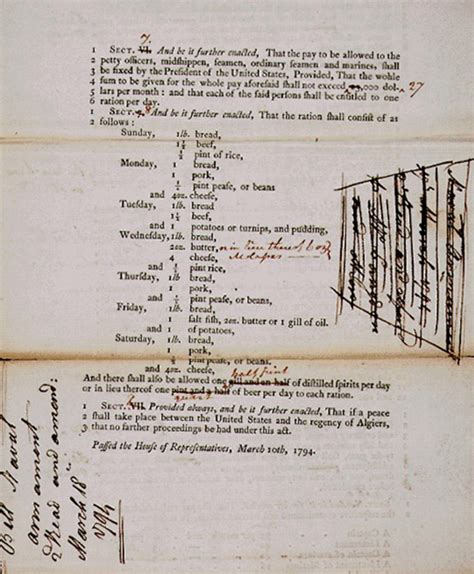 7.
1 SECT. VI. And be it further enacted, That the pay to be allowed to the
2 petty officers, midshippen, seamen, ordinary seamen and marines, shall
3 be fixed by the President of the United States, Provided, That the wohle
4 sum to be given for the whole pay aforesaid shall not exceed ,000 dol- 27
5 lars per month: and that each of the said persons shall be entitled to one
6 ration per day.
1 SECT. 8 And be it further enacted, That the ration shall consist of as
2 follows:
Sunday, 1lb. bread,
1½ beef,
½ pint of rice,
Monday, 1 bread,
1 pork,
½ pint pease, or beans
and 4oz. cheese,
Tuesday, 1lb. bread,
1½ beef,
and 1 potatoes or turnips, and pudding,
Wednesday, 1lb. bread,
2oz. butter, or in lieu thereof 6 oz.
4 cheese, Molasses
and ½ pint rice,
Thursday, 1lb. bread,
1 pork,
and ½ pint pease, or beans,
Friday, 1lb. bread,
1 salt fish, 2oz. butter or 1 gill of oil.
and 1 of potatoes,
Saturday, 1lb. bread,
1 pork,
½ pint pease, or beans.
and 4oz. cheese,
half pint
And there shall also be allowed one gill and an half of distilled spirits per day
or in lieu thereof one pint and a half of beer per day to each ration.
quart
1 SECT. VII. Provided always, and be it further enacted, That if a peace
2 shall take place between the United States and the regency of Algiers,
3 that no farther proceedings be had under this act.
Passed the House of Representatives, March 10th, 1794.
Bill Naval
armament
2 Read and amend:
March 18
1794